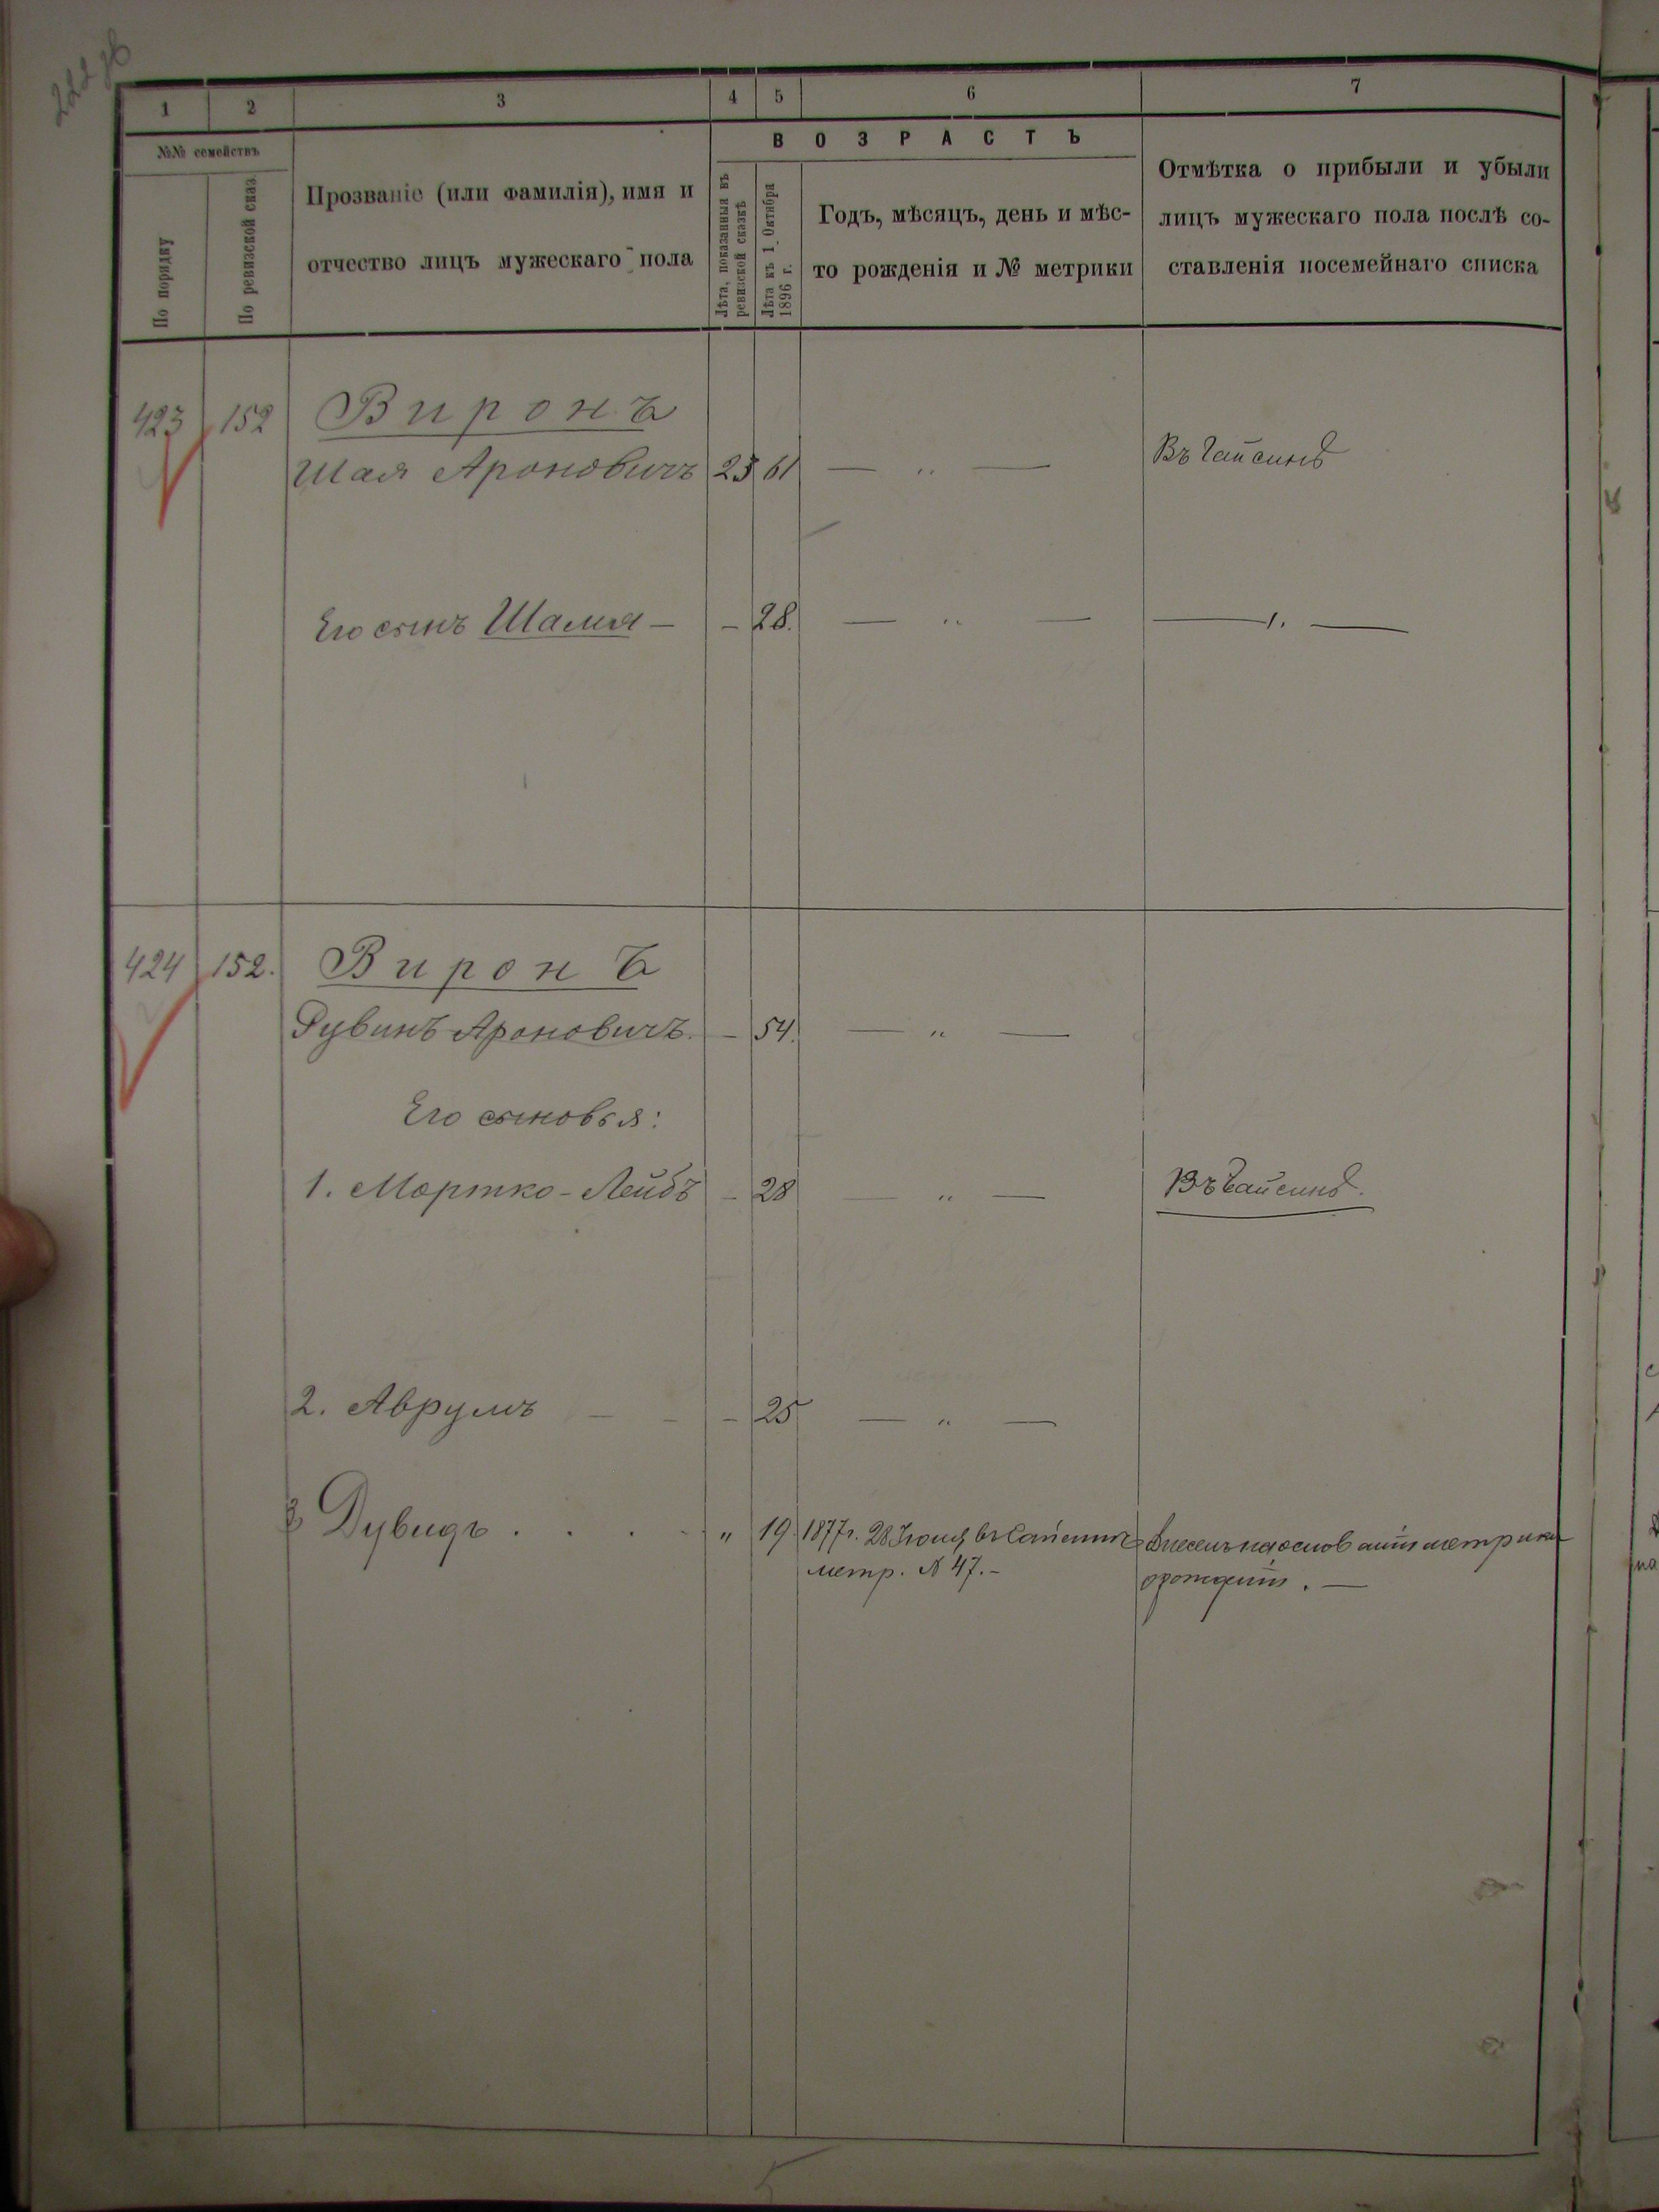 222 об
1 2 3 4 5 6 7
№№ семействъ
По порядку
По ревизской сказ.
Прозваніе (или фамилія), имя и
отчество лицъ мужескаго пола
ВОЗРАСТЪ
Лѣта, показанныя въ
ревизской сказкѣ
Лѣта къ 1 Октября
1896 г.
Годъ, мѣсяцъ, день и мѣс-
то рожденія и № метрики
Отмѣтка о прибыли и убыли
лицъ мужескаго пола послѣ со-
ставленія посемейнаго списка
423 152 Виронъ
Шая Ароновичъ 25 61 — " — Въ Гайсинѣ
Его сынъ Шамля — — 28. — " — — " —
424 152. Виронъ
Рувинъ Ароновичъ. — 54. — " —
Его сыновья:
1. Мортко-Лейбъ — 28 — " — Въ Гайсинѣ.
2. Аврумъ — — — 25 — " —
3 Дувидъ . . . " 19 1877 г. 28 Іюня, въ Гайсинѣ Внесенъ на основаніи метрики
метр. № 47. — о рожденіи. —